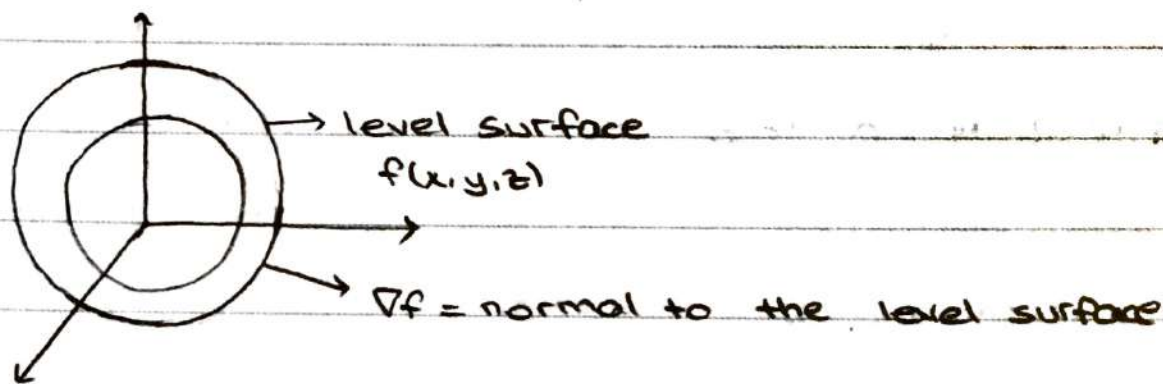 level surface
f(x,y,z)
∇f = normal to the level surface